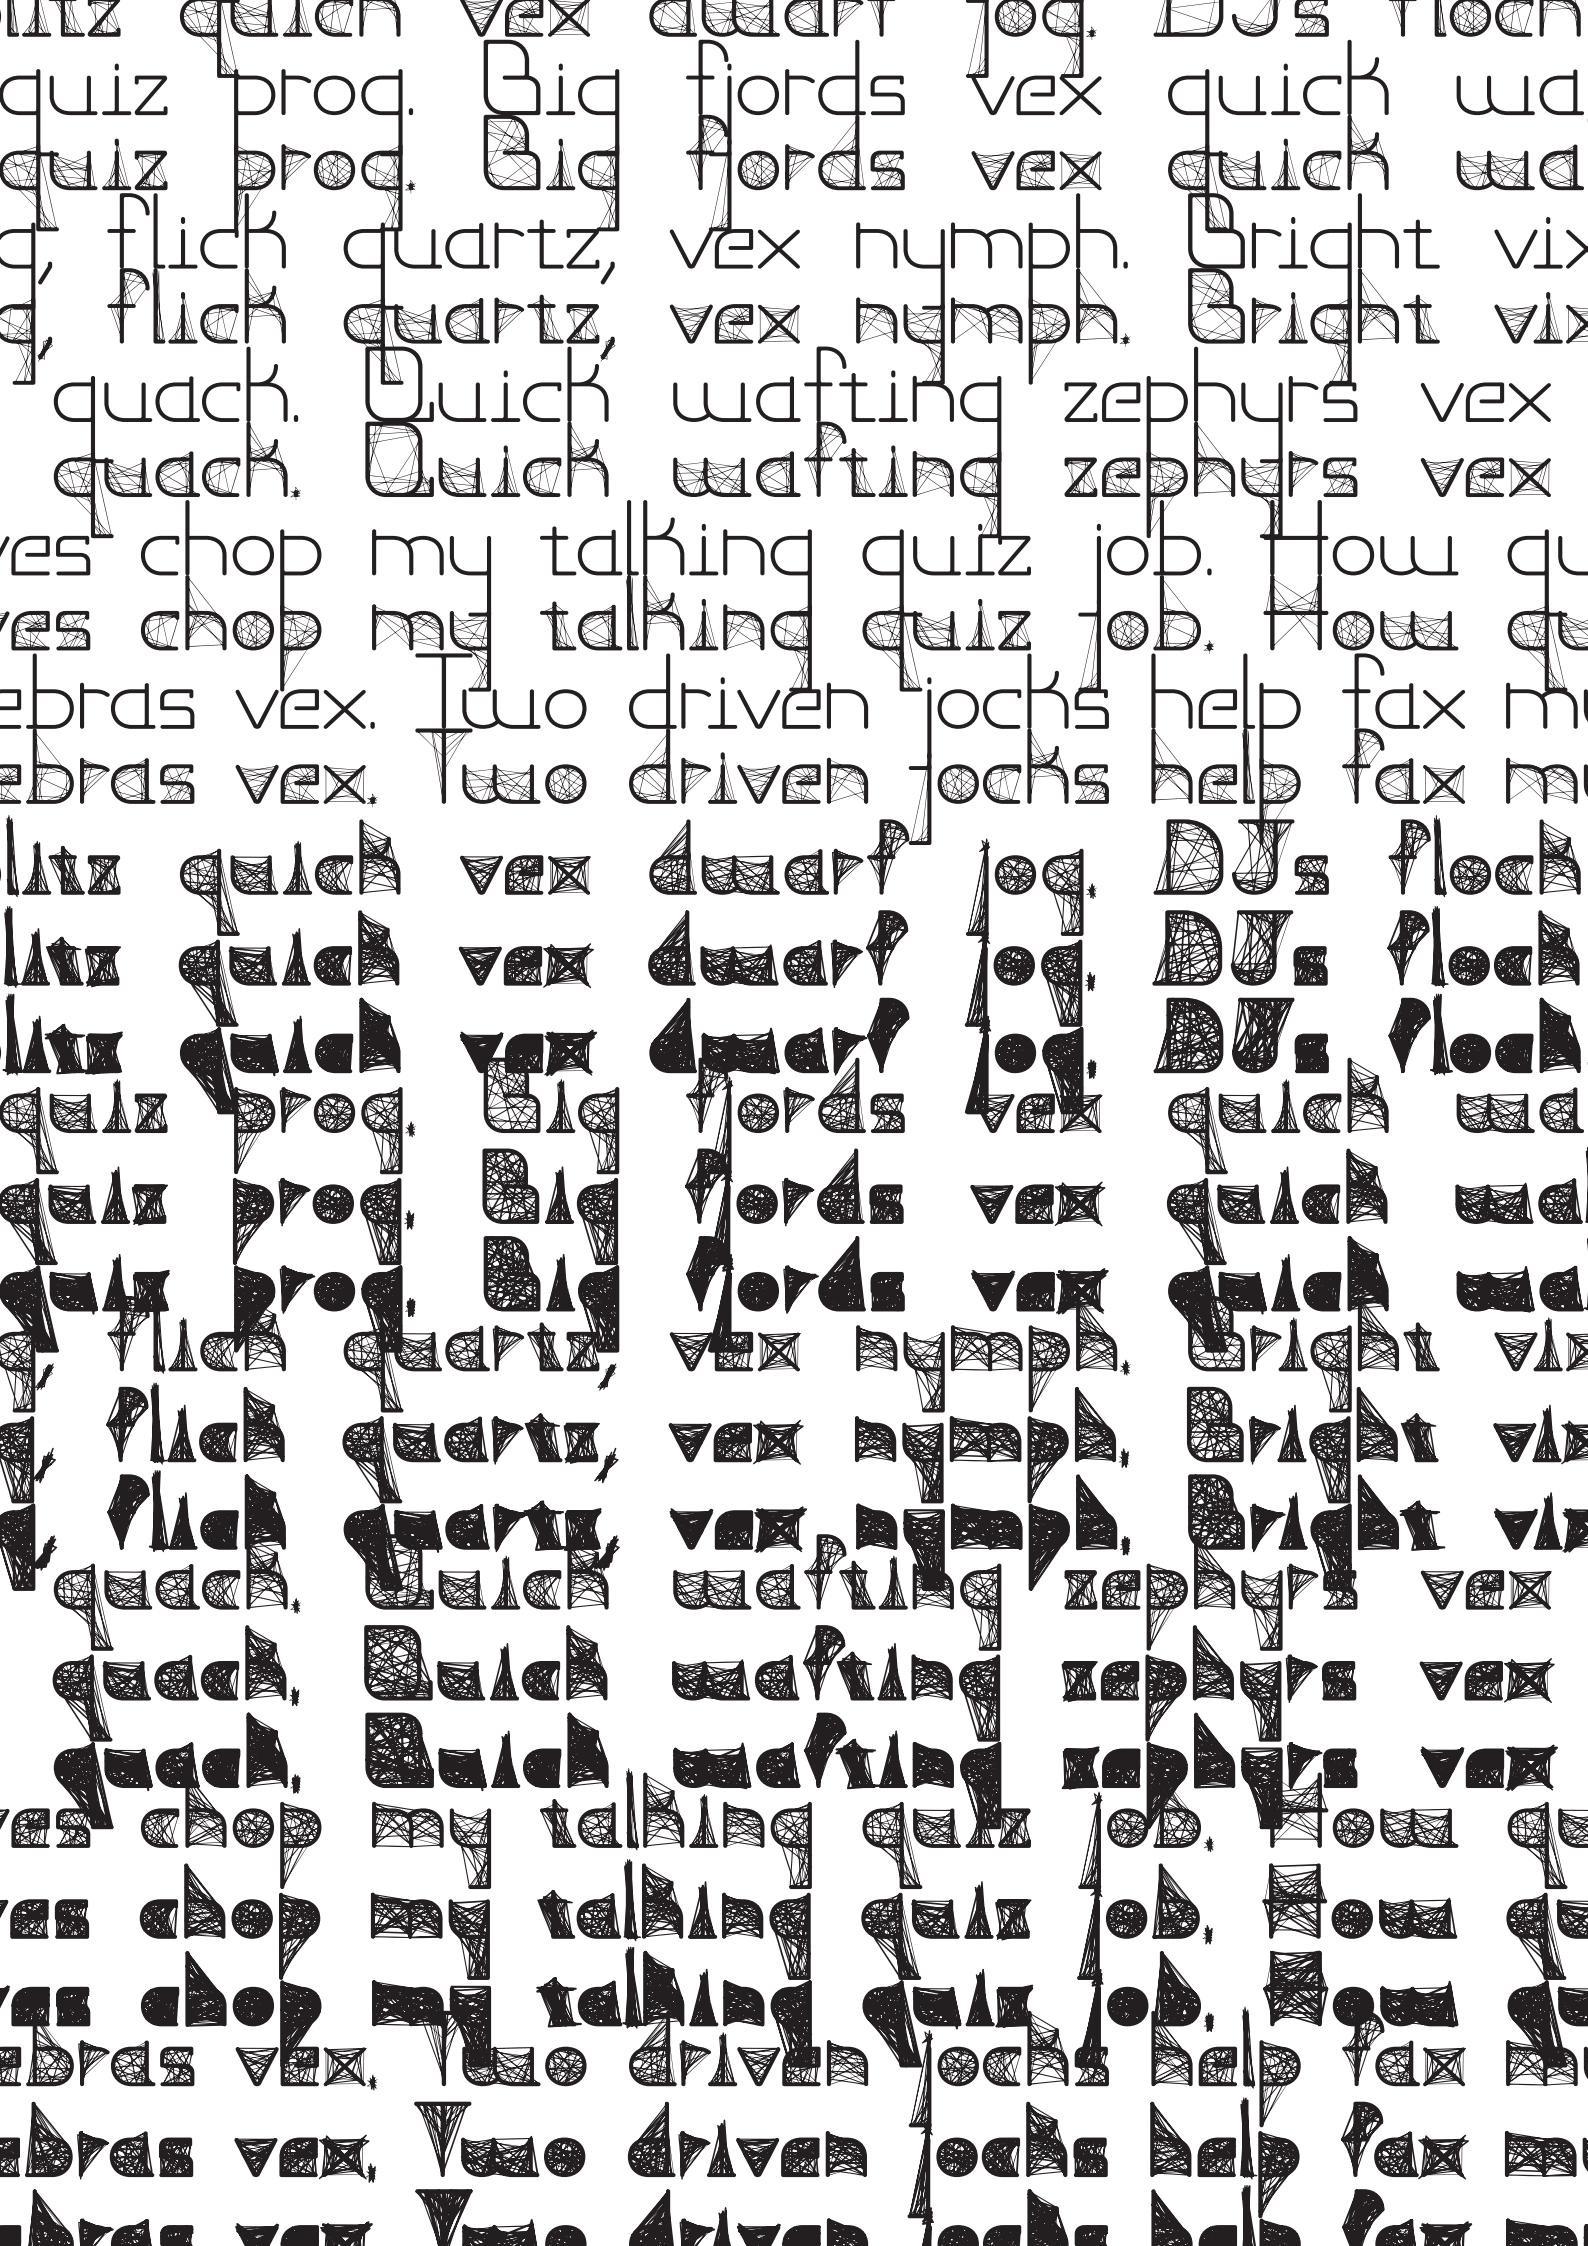 litz quick vex dwarf jog. DJs flock
quiz prog. Big fjords vex quick wa
quiz prog. Big fjords vex quick wa
g, flick quartz, vex nymph. Bright vix
g, flick quartz, vex nymph. Bright vix
quack. Quick wafting zephyrs vex
quack. Quick wafting zephyrs vex
ves chop my talking quiz job. How qu
ves chop my talking quiz job. How qu
ebras vex. Two driven jocks help fax my
ebras vex. Two driven jocks help fax my
litz quick vex dwarf jog. DJs flock
litz quick vex dwarf jog. DJs flock
litz quick vex dwarf jog. DJs flock
quiz prog. Big fjords vex quick wa
quiz prog. Big fjords vex quick wa
quiz prog. Big fjords vex quick wa
g, flick quartz, vex nymph. Bright vix
g, flick quartz, vex nymph. Bright vix
g, flick quartz, vex nymph. Bright vix
quack. Quick wafting zephyrs vex
quack. Quick wafting zephyrs vex
quack. Quick wafting zephyrs vex
ves chop my talking quiz job. How qu
ves chop my talking quiz job. How qu
ves chop my talking quiz job. How qu
ebras vex. Two driven jocks help fax my
ebras vex. Two driven jocks help fax my
ebras vex. Two driven jocks help fax my